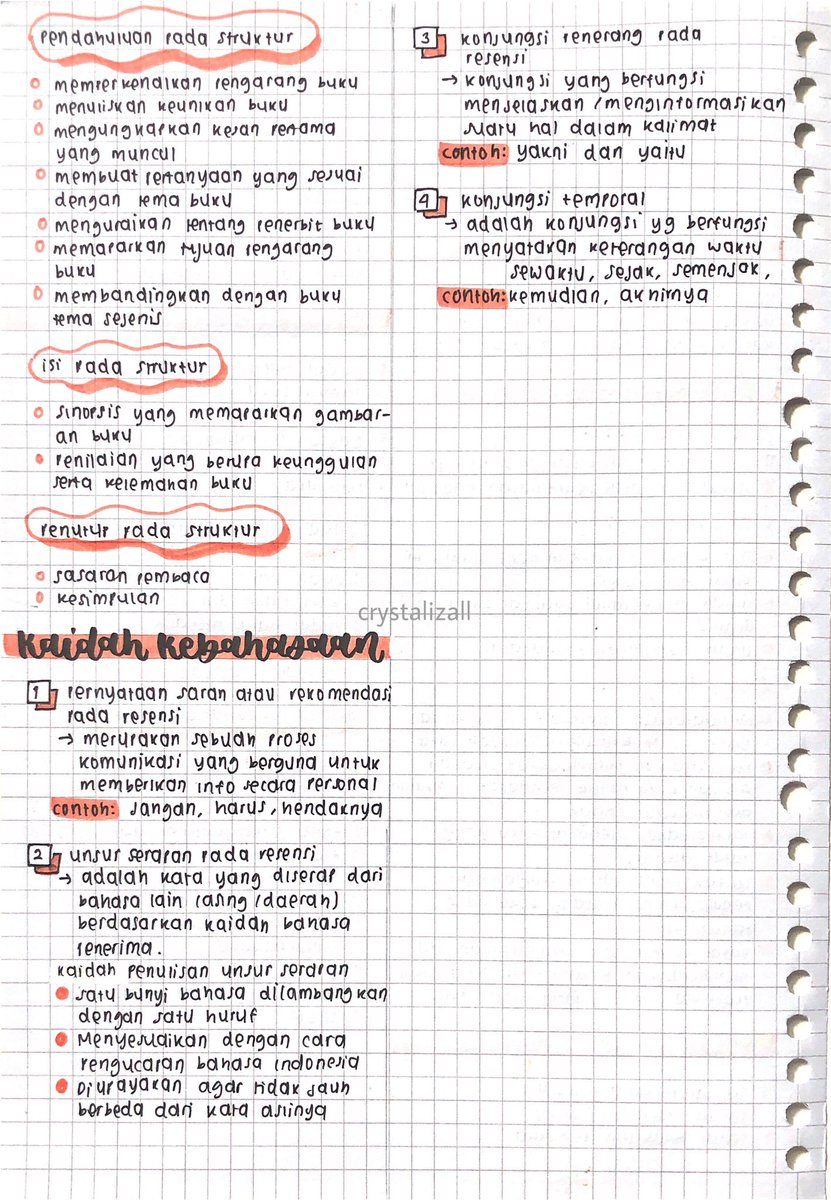 pendahuluan pada struktur
memperkenalkan pengarang buku
menuliskan keunikan buku
mengungkapkan kesan pertama
yang muncul
membuat pertanyaan yang sesuai
dengan tema buku
menguraikan tentang penerbit buku
memaparkan tujuan pengarang
buku
membandingkan dengan buku
tema sejenis
isi pada struktur
sinopsis yang memaparkan gambar-
an buku
penilaian yang berupa keunggulan
serta kelemahan buku
penutup pada struktur
sasaran pembaca
kesimpulan
kaidah kebahasaan
1 pernyataan saran atau rekomendasi
pada resensi
→ merupakan sebuah proses
komunikasi yang berguna untuk
memberikan info secara personal
contoh: jangan, harus, hendaknya
2 unsur serapan pada resensi
→ adalah kata yang diserap dari
bahasa lain (asing/daerah)
berdasarkan kaidah bahasa
penerima.
kaidah penulisan unsur serapan
satu bunyi bahasa dilambangkan
dengan satu huruf
Menyesuaikan dengan cara
pengucapan bahasa indonesia
Diupayakan agar tidak jauh
berbeda dari kata aslinya
3 konjungsi penerang pada
resensi
→ konjungsi yang berfungsi
menjelaskan/menginformasikan
suatu hal dalam kalimat
contoh: yakni dan yaitu
4 konjungsi temporal
→ adalah konjungsi yg berfungsi
menyatakan keterangan waktu
sewaktu, sejak, semenjak,
contoh: kemudian, akhirnya
crystalizall